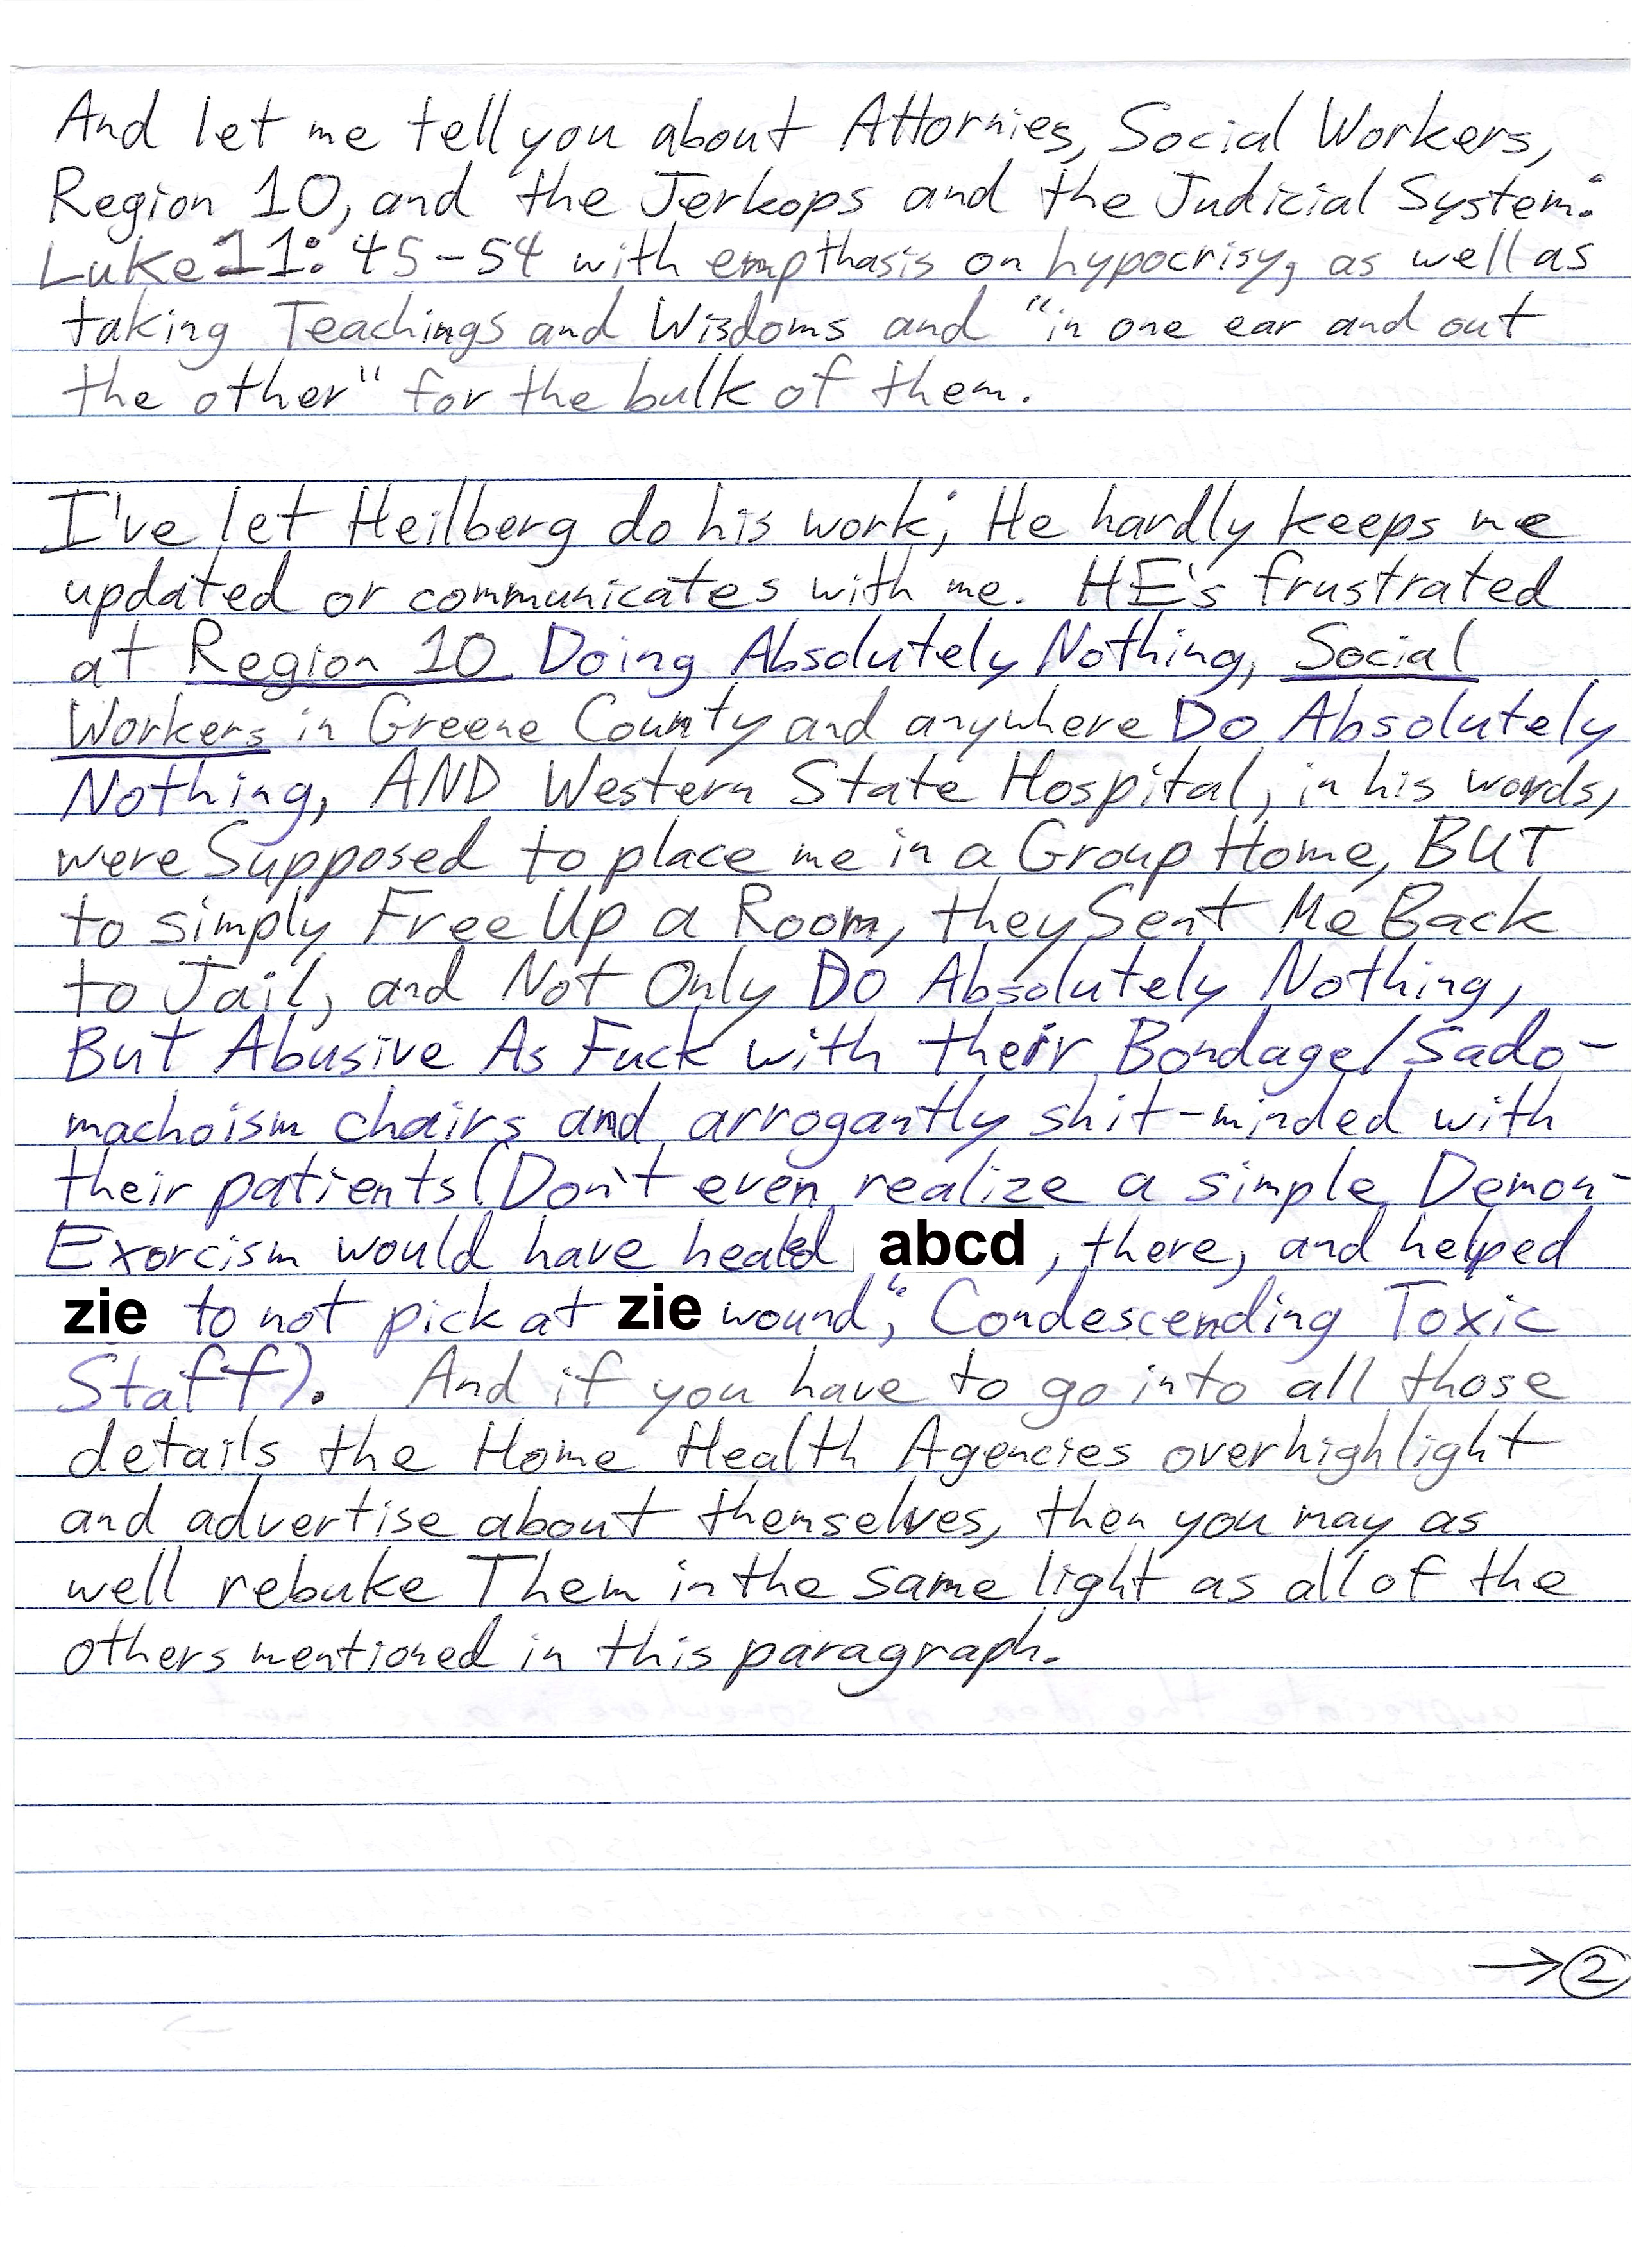 And let me tell you about Attornies, Social Workers,
Region 10, and the Jerkops and the Judicial System:
Luke 11:45-54 with empthasis on hypocrisy, as well as
taking Teachings and Wisdoms and "in one ear and out
the other" for the bulk of them.
I've let Heilberg do his work; He hardly keeps me
updated or communicates with me. HE's frustrated
at Region 10 Doing Absolutely Nothing, Social
Workers in Greene County and anywhere Do Absolutely
Nothing, AND Western State Hospital, in his words,
were Supposed to place me in a Group Home, BUT
to simply Free Up a Room, they Sent Me Back
to Jail, and Not Only DO Absolutely Nothing,
But Abusive As Fuck with their Bondage/Sado-
machoism chairs and arrogantly shit-minded with
their patients (Don't even realize a simple Demon-
Exorcism would have healed abcd, there, and helped
zie to not pick at zie wound; Condescending Toxic
Staff). And if you have to go into all those
details the Home Health Agencies overhighlight
and advertise about themselves, then you may as
well rebuke Them in the same light as all of the
others mentioned in this paragraph.
→2